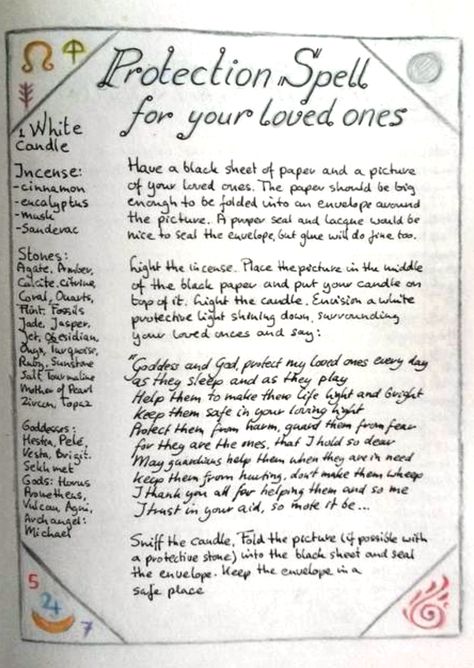 Protection Spell
for your loved ones
1 White
Candle
Incense:
-cinnamon
-eucalyptus
-musk
-Sanderac
Stones:
Agate, Amber,
Calcite, Citrine,
Coral, Quarts,
Flint, Fossils
Jade, Jasper,
Jet, Obesidian,
Onyx, Turquoise,
Ruby, Sunstone
Salt, Tourmaline
Mother of Pearl
Zircon, Topaz
Goddesses:
Hestia, Pele,
Vesta, Brigit.
Sekhmet
Gods: Horus
Prometheus,
Vulcan, Agni,
Archangel:
Michael
Have a black sheet of paper and a picture
of your loved ones. The paper should be big
enough to be folded into an envelope around
the picture. A proper seal and lacque would be
nice to seal the envelope, but glue will do fine too.
Light the incense. Place the picture in the middle
of the black paper and put your candle on
top of it. Light the candle. Envision a white
protective light shining down, surrounding
your loved onces and say:
"Goddess and God, protect my loved ones every day
as they sleep and as they play
Help them to make them life light and bright
Keep them safe in your loving light
Protect them from harm, guard them from fear
for they are the ones, that I hold so dear
May guardians help them when they are in need
Keep them from hurting, don't make them wheep
I thank you all for helping them and so me
I trust in your aid, so mote it be...
Sniff the candle, Fold the picture (if possible with
a protective stone) into the black sheet and seal
the envelope. Keep the envelope in a
safe place
5
24
7